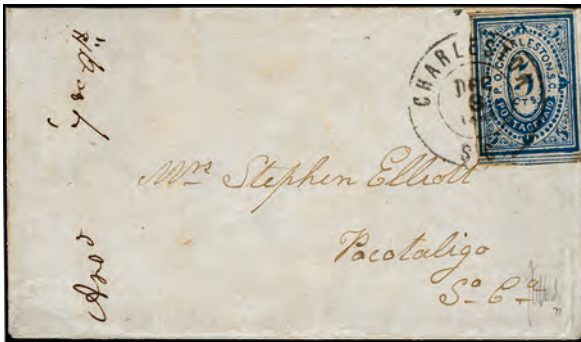 P.O. CHARLESTON, S.C.
5
CTS.
POSTAGE PAID
Mrs Stephen Elliott
Pocotaligo
So. Ca
Ansd